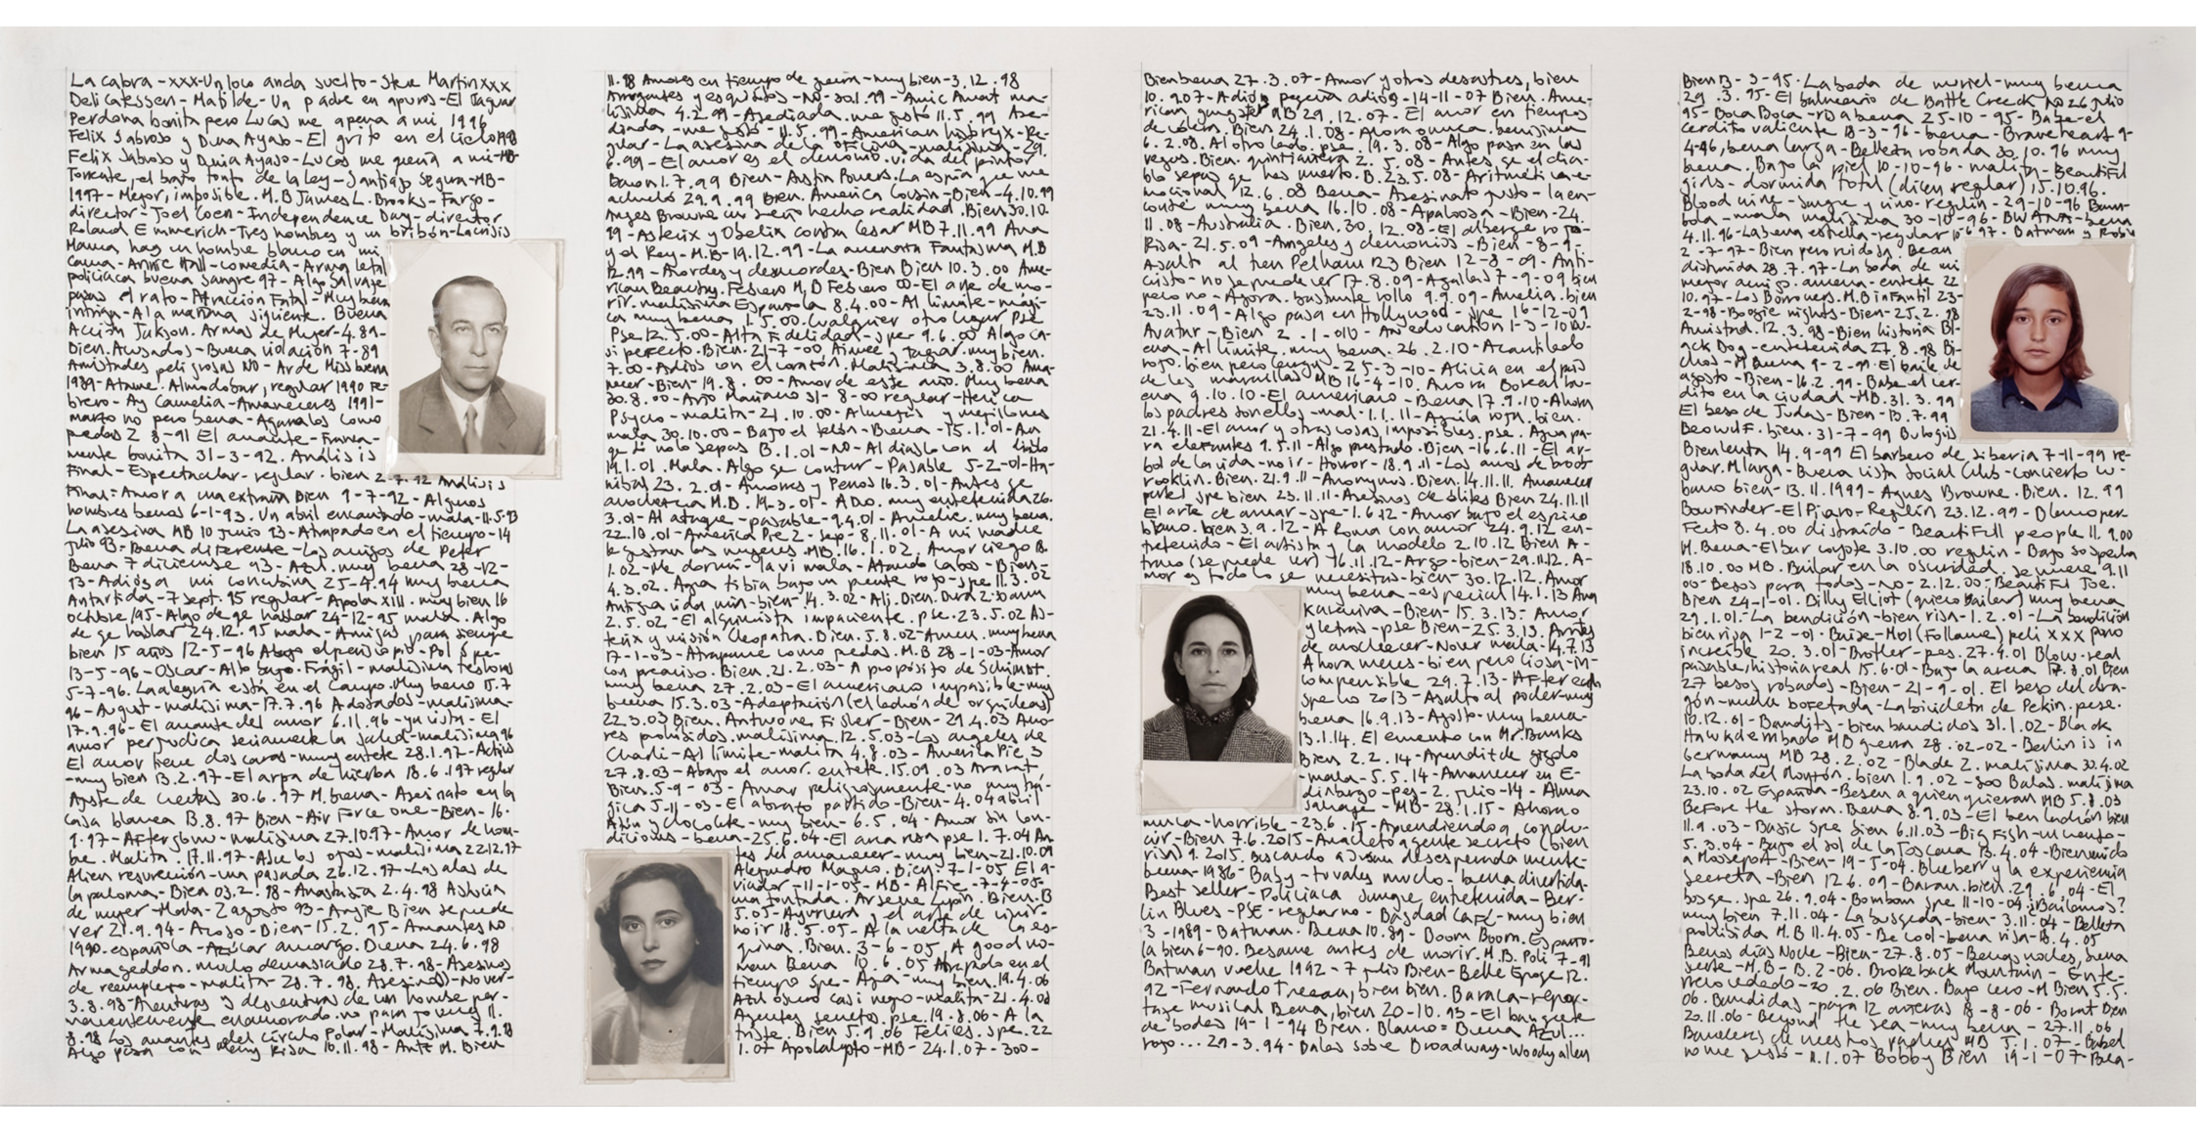 La cabra -xxx-Un loco anda suelto- Steve Martin xxx
Delicatessen- Matilde- Un padre en apuros-El Jaguar
Perdona bonita pero Lucas me a mi 1996
Felix Sabroso y Dunia Ayaso- El grito en el cielo 1998
Felix Sabroso y Dunia Ayaso-Lucas me quería a mi-MB-
Torrente, el brazo tonto de la ley-Santiago Segura-MB-
1997- Mejor, imposible. M.B James L. Brooks- Fargo-
director- Joel Coen- Independence Day- director
Roland Emmerich-Tres hombres y un bribón-La crisis
Mama hay un hombre blanco en mi
cama- Annie Hall-comedia-Arma letal
policiaca buena sangre 97- Algo salvaje
pasas el rato- Atracción Fatal- Muy buena
intriga- A la mañana siguiente. Buena
Acción Jakson. Armas de Mujer-4.89-
Bien. Acusados-Buena violación 7-89
Amistades peligrosas NO- Miss
1989- Atame. Almodobar, regular 1990 Fe-
brero- Ay Camelia-Amaneceres 1991-
marzo no pero buena- Agarralos como
puedas 2 8-91 El amante- Franca-
mente bonita 31-3-92. Análisis
Final- Espectacular- regular. bien 2-7.92 Análisis
Final- Amor a una extraña Bien 9-7-92- Algunos
hombres buenos 6-1-93. Un abril encantado-mala-11.5-93
La asesina MB 10 Junio 93- Atrapado en el tiempo-14
Julio 93- Buena diferente- Los amigos de Peter
Buena 7 diciembre 93- Azul. muy buena 28-12-
93- Adiós a mi concubina 25-4.94 muy buena
Antartida-7 sept. 95 regular- Apolo XIII. muy bien 16
octubre/95- Algo de qe hablar 24-12-95 mala. Algo
de qe hablar 24.12.95 mala- Amigas para siempre
bien 15 años 12-5-96 Abajo el periscopio-
13-5-96- Oscar- Alto bajo. Frágil- malísima
5-7-96. La alegría está en el campo. Muy bueno 15.7
96- August- malísima-17.7.96 Adosados- malísima-
17.9.96- El amante del amor 6.11.96- ya vista- El
amor perjudica seriamente la salud-malísima 96
El amor tiene dos caras- muy entete 28.1.97- Actius
-muy bien 13.2.97- El arpa de hierba 18.6.197 regular
Ajuste de cuentas 30.6.97 M. buena- Asesinato en la
casa blanca 13.8.97 Bien- Air Force one-Bien-16.
9.97- Afterglow- malísima 27.10.97- Amor de hom-
bre. Malita. 17.11.97- Abre los ojos- malísima 22.12.97
Alien resurección- una pasada 26.12.97- Las alas de
la paloma- Bien 03.2.98- Anastasia 2.4.98
de mujer-Mala- 2 agosto 93- Angie Bien se puede
ver 21.9.94- Acoso-Bien-15.2.95- Amantes no
1990. española- Azúcar amargo. Buena 24.6.98
Armageddon. malo demasiado 28.7.98- Asesinos
de reemplazo- malita- 28.7.98. Asesin@s-No ver-
3.8.98- Aventuras y desventuras de un hombre per-
manentemente enamorado. no para jovenes 11.
8.98 Los amantes del círculo Polar- Malísima 7.9.98
Algo pasa con Mary Risa 16.11.98- Antz M. Bien
11.98 Amores en tiempo de guerra-muy bien-3.12.98
Arrogantes y esquivos- NO- 30.1.99- Amic Amat ma-
lísima 4.2.99- Asediada. me gustó 11.5.99 Ase-
diada- me gustó- 11.5.99- American history x- Re-
gular- La asesina de la oficina-malísima-29.
6.99- El amor es el demonio. vida del pintor
Bacon 1.7.99 Bien- Austin Powers. La espía que me
achuchó 29.9.99 Bien. America Cousin-Bien-4.10.99
Anges Browne un sueño hecho realidad. Bien 30.10.
99- Asterix y Obelix contra Cesar MB 7.11.99 Ana
y el Rey- M.B-19.12.99- La amenaza Fantasma M.B
12.99- Acordes y desacordes-Bien Bien 10.3.00 Ame-
rican Beauty. Febrero M.B Febrero 00- El arte de mo-
rir. malísima Española 8.4.00- Al límite- mági-
ca muy buena 1.5.00. Cualquier otro lugar Pse
Pse 12.5.00- Alta Fidelidad- spe- 9.6.00 Algo ca-
si perfecto. Bien. 21-7-00 Aimee y Jaguar. muy bien.
7.00- Adios con el corazón. Malísima 3.8.00 Ama-
necer-Bien-19.8.00- Amor de este año. Muy buena
30.8.00- Arjo Mariano 31-8-00 regular- America
Psyco- malita-21.10.00- Almejas y mejillones
mala 30.10.00- Bajo el telón- Buena-15.1.01- An
qe tu lo sepas B.1.01- NO- Al diablo con el
19.1.01. Mala. Algo qe contar- Pasable 5-2-01-Ha-
nibal 23.2.01- Amores y Perros 16.3.01- Antes qe
anochezca M.B. 19-3.01- A.D.O. muy entetenida 26.
3.01- Al ataque- pasable-9.4.01- Amelie. muy buena.
22.10.01- America Pie 2- sep- 8.11.01- A mi madre
le gustan las mujeres. MB. 16.1.02, Amor ciego B.
1.02- Me dormí- la vi mala- Atando Cabos- Bien-
4.3.02. Agua tibia bajo un puente rojo- spe 11.3.02
Antigua vida mía-bien-14.3.02- Alí. Bien. Dura 2:30mm
2.5.02- El alquimista impaciente. pse-23.5.02 As-
terix y misión Cleopatra. Bien. 5.8.02-Amen. muy buena
17-1-03- Atrapame como puedas. M.B 28-1-03-Amor
con preaviso. Bien. 21.2.03- A propósito de Schimdt.
muy buena 27.2.03- El americano impasible-muy
buena 15.3.03- Adaptación (el ladrón de orquideas)
22.3.03 Bien. Antwone Fisher- Bien-29.4.03 Amo-
res prohibidos. malísima. 12.5.03- Los angeles de
Charli- Al límite-malita 4.8.03- America Pie 3
27.8.03- Abajo el amor. entete. 15.09.03 Ararat,
Bien. 5-9-03- Amar peligrosamente-no muy trá-
gica 5-11-03- El abrazo partido-Bien-4.04 abril
Atún y chocolate- muy bien-6.5.04- Amor sin con-
diciones- buena-25.6.04- El ama risa pse 1.7.04 An
tes del amanecer- muy bien-21.10.04
Alejandro Magno. Bien-7-1-05 El a-
viador-11-1-05- MB- Alfie-7-4-05-
una tontada. Arsene Lupin. Bien. B
5.05- Ayurveda y el arte de vivir-
no ir 18.5.05- A la vuelta de la es-
quina. Bien. 3-6-05, A good wo-
man Buena 10.6.05 Atrapado en el
tiempo spe- Agua-muy bien. 19.4.06
Azul oscuro casi negro-malita-21.4.06
Agentes secretos. pse. 19.8.06- A la
triste. Bien 5.9.06 Felices. spe. 22
1.07 Apokalypto-MB-24.1.07-300-
Bien buena 27.3.07-Amor y otros desastres, bien
10.9.07- Adiós pequeña adiós-14-11-07 Bien. Ame-
rican gangster MB 29.12.07- El amor en tiempos
de cólera. Bien 24.1.08- Ahora o nunca. buenísima
6.2.08. Al otro lado. pse. 19.3.08- Algo pasa en las
vegas. Bien. quinticuatra 2.5.08- Antes qe el dia-
blo sepas qe has muerto. B. 23.5.08- Aritmética e-
mocional 12.6.08 Buena- Asesinato justo- la en-
contré muy buena 16.10.08- Apaloosa- Bien-24.
11.08- Australia. Bien. 30.12.08- El albergue rojo-
Risa-21.5.09- Angeles y demonios- Bien-8-9-
Asalto al tren Pelham 123 Bien 12-8-09- Anti-
cristo- no se puede ver 17.8.09- Agallas 7-9-09 bien
pero no- Agora. bastante rollo 9.9.09- Amelia. bien
23.11.09- Algo pasa en Hollywood- spe 16-12-09
Avatar- Bien 2-1-010- An education 1-3-10 bu-
ena- Al límite. muy buena. 26.2.10- Acantilado
rojo. bien pero larga-25-3-10- Alicia en el país
de las maravillas MB 16-4-10. Aurora Boreal bu-
ena 9.10.10- El americano- Buena 17.9.10- Ahora
los padres son ellos-mal-1.1.11- Aguila roja. bien.
21.4.11- El amor y otras cosas imposibles. pse. Agua pa-
ra elefantes 9.5.11- Algo prestado. Bien-16.6.11- El ar-
bol de la vida- no ir- Horror-18.9.11- Los amos de broo
rooklin. Bien. 21.9.11- Anonymus. Bien. 14.11.11. Amanecer
parte 1 spe bien 23.11.11- Asesinos de élites Bien 24.11.11
El arte de amar- spe-1.6.12- Amor bajo el espino
blanco. bien 3.9.12- A Roma con amor 24.9.12 en-
tretenido- El artista y la modelo 2.10.12 Bien A-
traco (se puede ver) 16.11.12- Argo-bien-29.11.12. A-
mor es todo lo qe necesitas-bien-30.12.12. Amor
muy buena- especial 14.1.13 Ana
Karenina- Bien-15.3.13- Amor
y letras- pse Bien-25.3.13. Antes
de anochecer- No ver mala-14.7.13
Ahora me ves- bien pero liosa-in-
compensible 29.7.13- After earth
spe no 2013- Asalto al poder-muy
buena 16.9.13- Agosto-muy buena-
13.1.14. El encuentro con Mr. Banks
Bien 2.2.14- Aprendiz de gigolo
-mala-5.5.14- Amanecer en E-
dimburgo- pes-2. julio-14- Alma
salvaje- MB-28.1.15- Ahora o
nunca-horrible-23.6.15-Aprendiendo a condu-
cir-Bien 7.6.2015- Anacleto agente secreto (bien
risa) 9.2015. Buscando a Susan desesperada mente-
buena-1986- Baby- tu vales mucho- buena divertida-
Best seller- Policiaca sangre entretenida- Ber-
lin Blues- PSE-regular no- Bagdad Café-muy bien
3-1989- Batman. Buena 10.89- Boom Boom.
la bien 6-90. Besame antes de morir. M.B. Poli 7-91
Batman vuelve 1992-7 julio Bien- Belle Epoqe 12.
92- Fernando Trueba, bien bien. Baraca-repor-
taje musical Buena, bien 20-10.93- El banquete
de bodas 19-1-94 Bien. Blanco= Buena Azul...
rojo... 29-3.94- Balas sobre Broadway-Woody Allen
Bien B-3-95- La boda de muriel- muy buena
29.3.95- El balneario de Battle Creeck NO 26 julio
95- Boca Boca- buena 25-10-95- Babe-el
cerdito valiente 18-3-96- buena- Braveheart 9-
4-96, buena larga- Belleza robada 30.10.96 muy
buena. Bajo la piel 10-10-96- malita- Beautiful
girls- dormida total (dicen regular), 15.10.96.
Blood wine- sangre y vino-regulin-29-10-96 Bam-
bola- mala malísima 30-10-96- BWANA- buena
4.11.96- La buena estrella-regular 10-6-97. Batman y Robin
2-7-97- Bien pero ruidosa. Bean
distraida 28.7.97- La boda de mi
mejor amigo. amena- entete 22
10.97- Los Borrowers. M.B infantil 23-
2-98- Boogie nights- Bien-25.2.98
Amistad. 12.3.98- Bien historia Bl-
ack Dog- entetenida 27.8.98 Bi-
chos- M Buena 9-2-99. El baile de
agosto- Bien-16.2.99- Babe el cer-
dito en la ciudad-MB.31.3.99
El beso de Judas- Bien-13.7.99
Beowulf. bien. 31-7-99
Bien lenta 14.9-99 El barbero de Siberia 7-11-99 re-
gular. M larga- Buena Vista Social Club- Concierto cu-
bano bien-13.11.1999- Agnes Browne. Bien. 12.99
Bowfinder- El Pájaro- Regulín 23.12.99- Blanco per-
fecto 8.4.00 distraído- Beautifull people 11.9.00
M. Buena- El bar coyote 3.10.00 regulin- Bajo sospecha
18.10.00 MB. Bailar en la oscuridad. se muere 9.11
00- Besos para todos- NO-2.12.00- Beautiful Joe.
Bien 24-1-01. Billy Elliot (quiero bailar) muy buena
29.1.01- La bendición- bien risa-1.2.01- La bendición
bien risa 1-2-01- Baise-Moi (Follame) peli xxx pero
increíble 20.3.01- Brother-pes. 27.4.01 Blow. real
pasable/historia real 15.6.01- Bajo la arena 17.8.01 Bien
27 besos robados- Bien-21-9-01. El beso del dra-
gón-mucha bofetada- La bicicleta de Pekin. pese.
10.12.01- Bandits-bien bandidos 31.1.02- Black
Hawk derribado MB guerra 28.02-02- Berlin is in
Germany MB 28.2.02- Blade 2. malísima 30.4.02
La boda del Monzón. bien 1.9.02- 800 Balas. malísima
23.10.02 Española- Besen a quien quieran MB 5.8.03
Before the storm. Buena 8.9.03- El buen ladrón bien
11.9.03- Basic spe bien 6.11.03- Big Fish-un cuento-
5.3.04- Bajo el sol de la Toscana 13.4.04- Bienvenido
a Mooseport- Bien-19-5-04. Blueberry y la experiencia
secreta-Bien 12.6.04- Baran. bien. 29.6.04- El
bosqe. spe 26.9.04- Bombon spe 11-10-04 ¿Bailamos?
muy bien 7.11.04- La busqeda-bien-3.11.04- Belleza
prohibida M.B 11.4.05- Be cool-buena risa-B.4.05
Buenos días Noche- Bien-27.8.05- Buenas noches, buena
suerte- M.B-B.2-06. Brokeback Mountain- Ente-
rrelo vedado-20.2.06 Bien. Bajo cero-M Bien 5.5.
06. Bandidas- para 12 añeras 18-8-06- Borat Bien
20.11.06- Beyond the sea-muy buena-27.11.06
Banderas de nuestros padres MB 5.1.07- Babel
no me gustó-11.1.07 Bobby Bien 19-1-07- Bea-